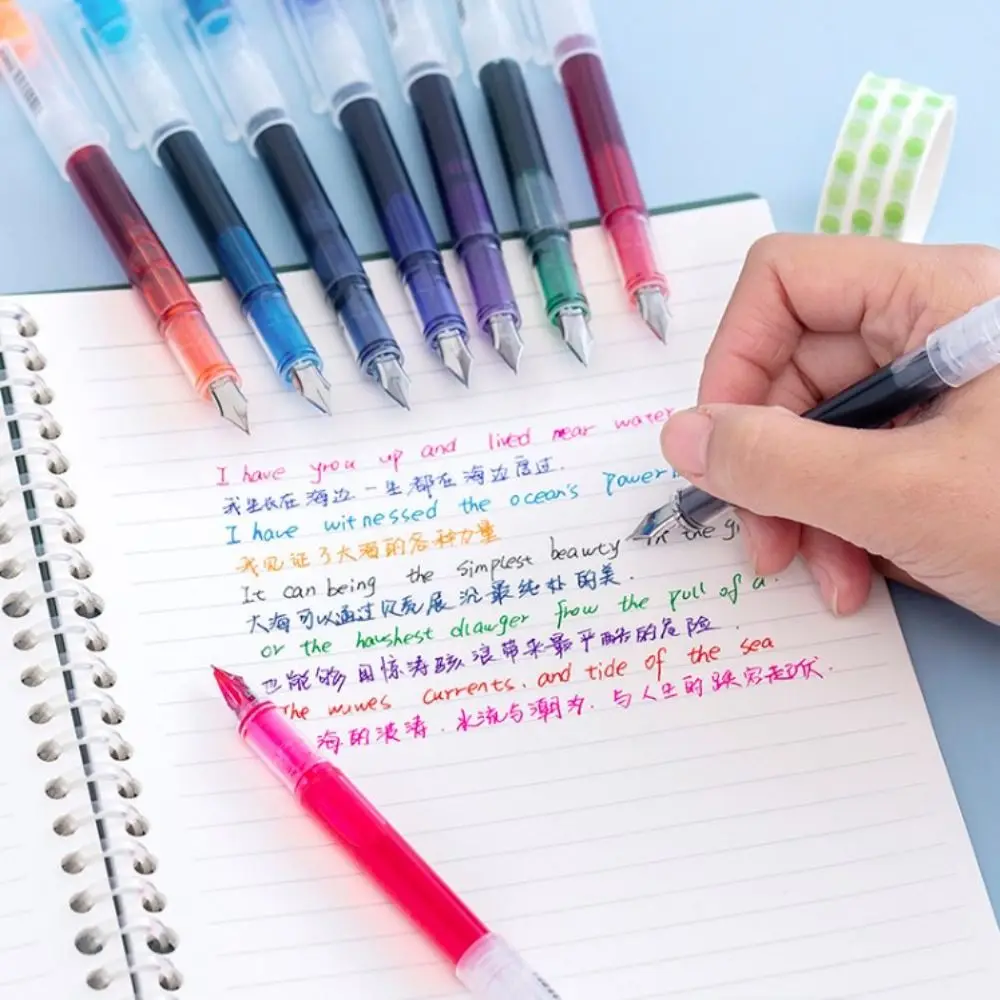 I have grou up and lived near water
我生长在海边一生都在海边度过.
I have witnessed the ocean's power
我见证了大海的各种力量
It can being the simplest beauty in the g
大海可以通过 展 最纯朴的美.
or the haushest dlawger from the pull of a
也能够用惊涛骇浪带来最严酷的危险.
the wuwes currents, and tide of the sea
海的浪涛.水流与潮汐.与人生的跌宕起伏.